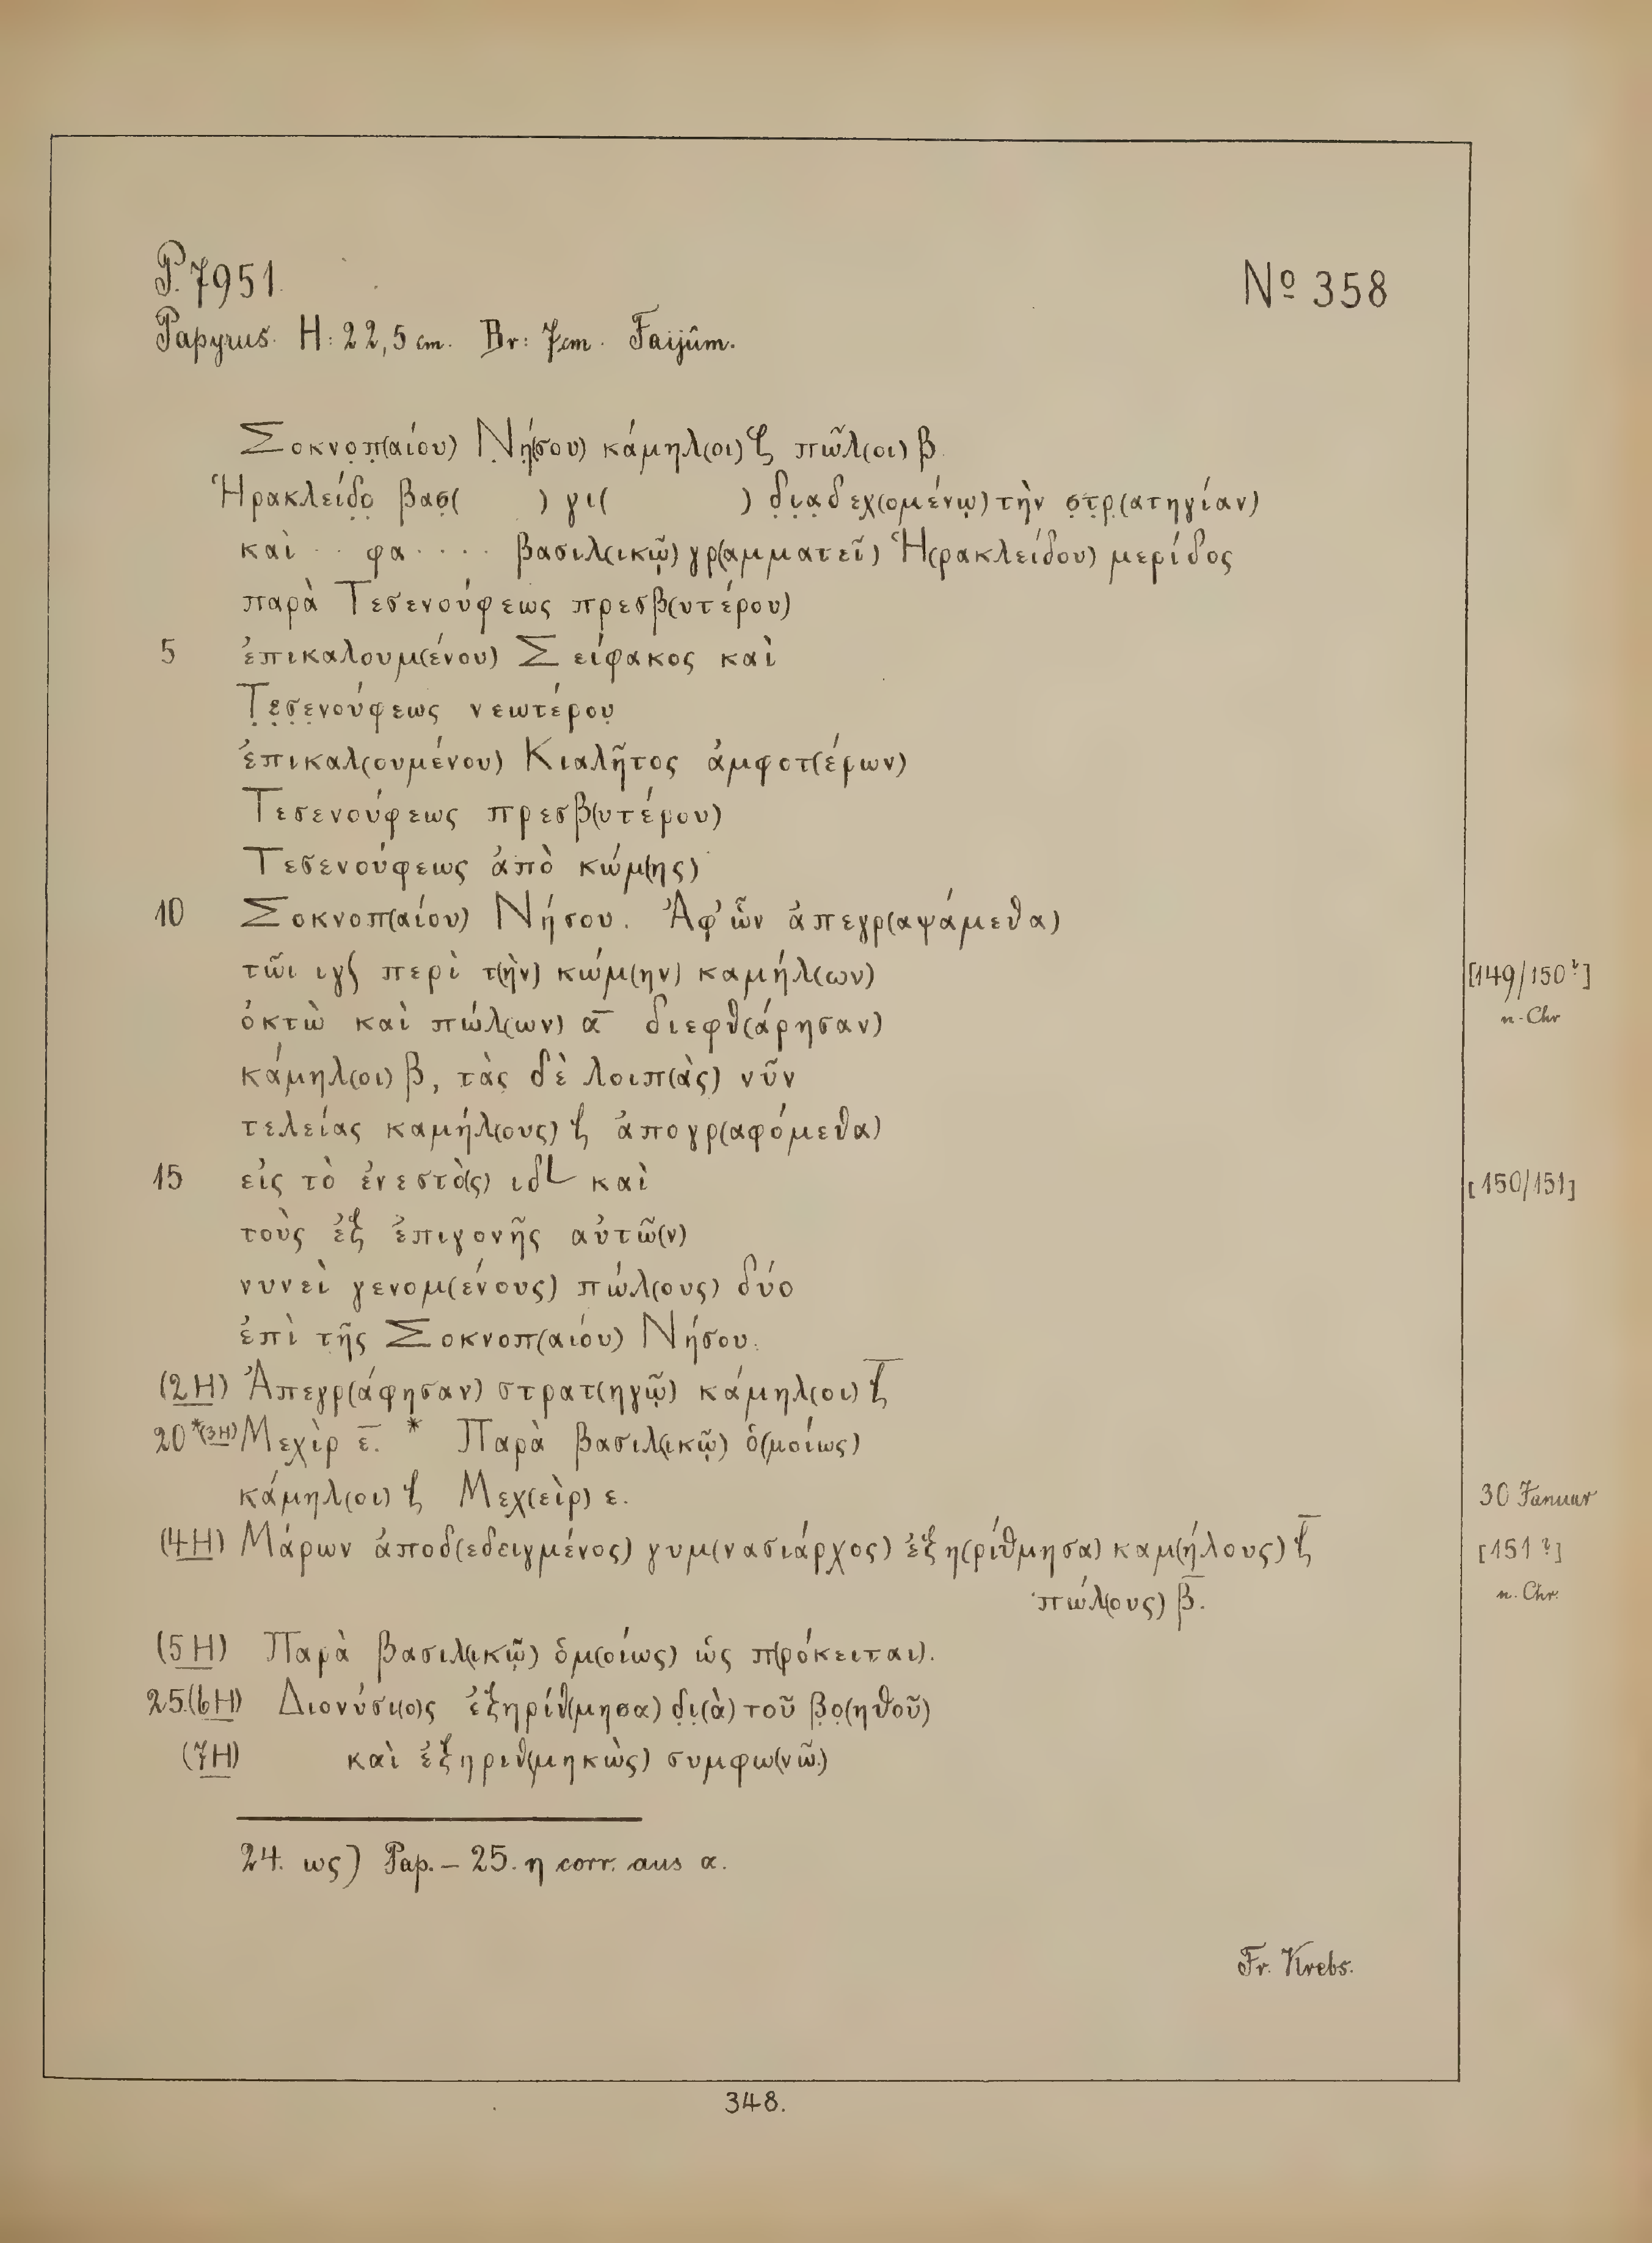 P. 7951.
Nº 358
Papyrus. H: 22,5 cm. Br: 7cm. Faijûm.
Σοκνο̣π̣(αίου) Ν̣ή̣(σου) κάμηλ(οι) ζ πῶλ(οι) β
Ἡρακλείδ̣ο̣ βασ̣( ) γι( ) δ̣ι̣α̣δεχ(ομένῳ) τὴν σ̣τ̣ρ̣(ατηγίαν)
καὶ ·· φα ···· βασιλ(ικῷ) γρ(αμματεῖ) Ἡ(ρακλείδου) μερίδος
παρὰ Τεσενούφεως πρεσβ(υτέρου)
5 ἐπικαλουμ(ένου) Σείφακος καὶ
Τ̣ε̣σ̣ε̣νούφεως νεωτέρου̣
ἐπικαλ(ουμένου) Κιαλῆτος ἀμφοτ(έρων)
Τεσενούφεως πρεσβ(υτέρου)
Τεσενούφεως ἀπὸ κώμ(ης)
10 Σοκνοπ(αίου) Νήσου. Ἀφ' ὧν ἀπεγρ(αψάμεθα)
τῶι ιγ∫ περὶ τ(ὴν) κώμ(ην) καμήλ(ων)
[149/150?]
n. Chr
ὀκτὼ καὶ πώλ(ων) α̅ διεφθ(άρησαν)
κάμηλ(οι) β, τὰς δὲ λοιπ(ὰς) νῦν
τελείας καμήλ(ους) ζ ἀπογρ(αφόμεθα)
15 εἰς τὸ ἐνεστὸ(ς) ιδL καὶ
[150/151]
τοὺς ἐξ ἐπιγονῆς αὐτῶ(ν)
νυνεὶ γενομ(ένους) πώλ(ους) δύο
ἐπὶ τῆς Σοκνοπ(αίου) Νήσου.
(2H) Ἀπεγρ(άφησαν) στρατ(ηγῷ) κάμηλ(οι) ζ̅
20 *(3H) Μεχὶρ ε̅. * Παρὰ βασιλ(ικῷ) ὁ(μοίως)
κάμηλ(οι) ζ Μεχ(εὶρ) ε.
30 Januar
(4H) Μάρων ἀποδ(εδειγμένος) γυμ(νασιάρχος) ἐξη(ρίθμησα) καμ(ήλους) ζ̅
[151?]
πώλ(ους) β̅.
n. Chr.
(5H) Παρὰ βασιλ(ικῷ) ὁμ(οίως) ὡς π(ρόκειται).
25.(6H) Διονύσι(ο)ς ἐξηρίθ(μησα) δ̣ι̣(ὰ) τοῦ β̣ο̣(ηθοῦ)
(7H) καὶ ἐξηριθ(μηκὼς) συμφω(νῶ)
24. ως) Pap. – 25. η corr. aus α.
Fr. Krebs.
348.